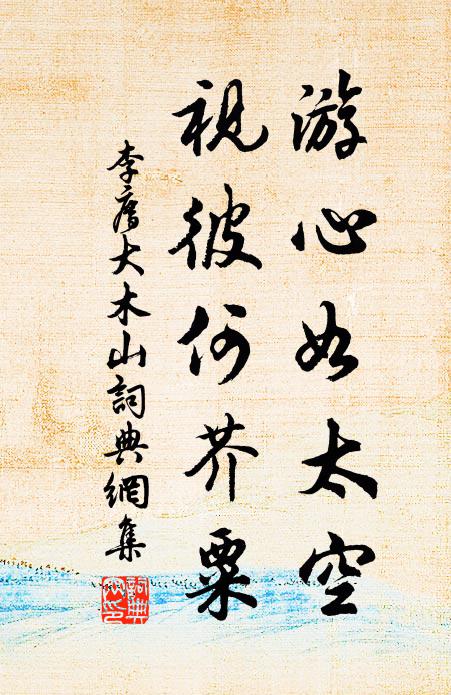 游心如太空
視彼何芥粟
李廌大木山詞典網集